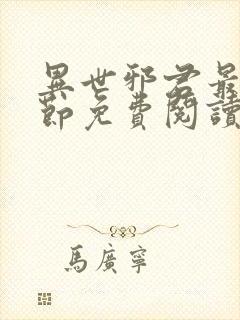 異世邪君最
節免費閱讀
馬廣寧